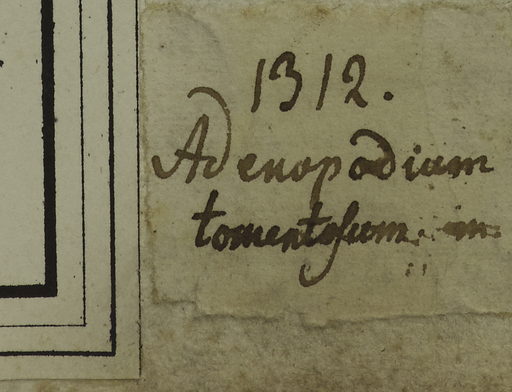 1312.
Adenopodium
tomentosum.